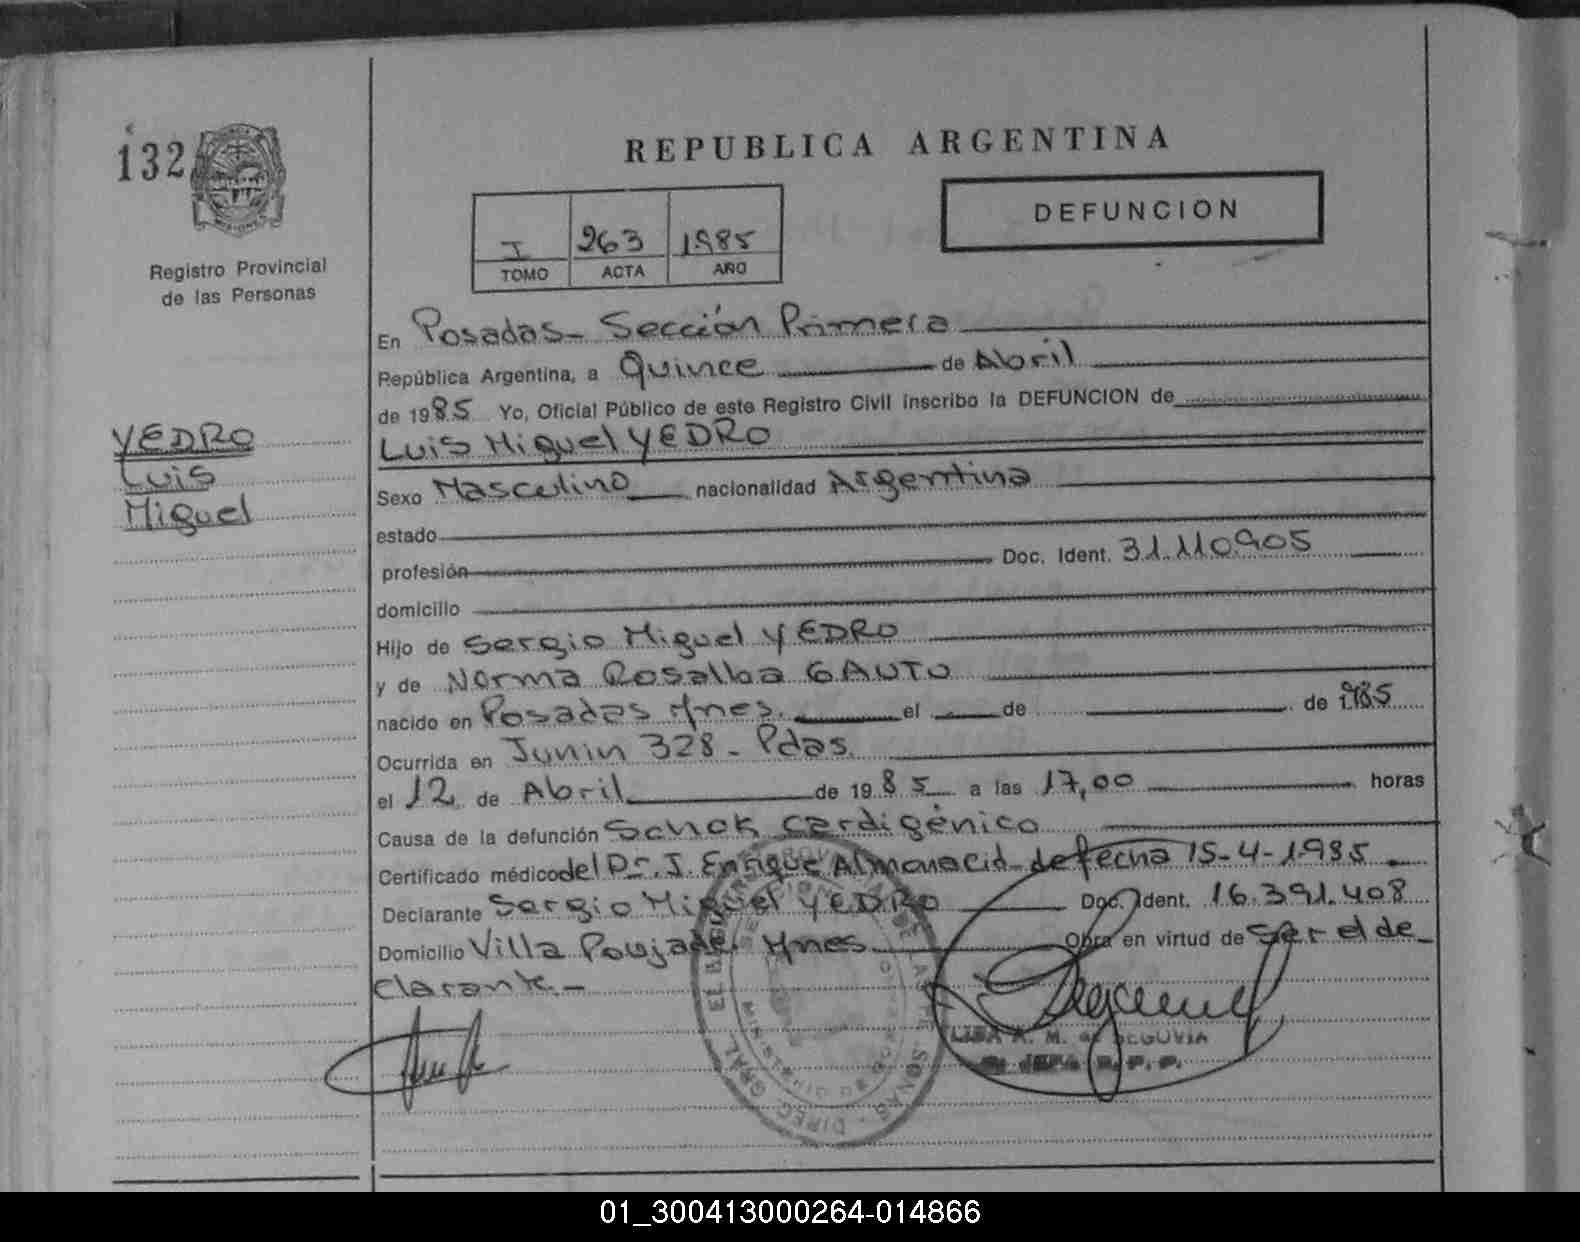 132
REPUBLICA ARGENTINA
DEFUNCION
I 263 1985
TOMO ACTA AÑO
Registro Provincial
de las Personas
YEDRO
Luis
Miguel
En Posadas- Sección Primera
República Argentina, a Quince de Abril
de 1985 Yo, Oficial Público de este Registro Civil inscribo la DEFUNCION de
Luis Miguel YEDRO
Sexo Masculino nacionalidad Argentina
estado
profesión Doc. Ident. 31.110.905
domicilio
Hijo de Sergio Miguel YEDRO
y de Norma Rosalba GAUTO
nacido en Posadas Mnes. el de de 1985
Ocurrida en Junin 328 - Pdas.
el 12 de Abril de 1985 a las 17,00 horas
Causa de la defunción Schok cardigénico
Certificado médico del Dr. J. Enrique Almonacid de fecha 15-4-1985
Declarante Sergio Miguel YEDRO Doc. Ident. 16.391.408
Domicilio Villa Poujade. Mnes Obra en virtud de ser el de-
clarante.-
M. de SEGOVIA
JEFA R. P. P.
01_300413000264-014866